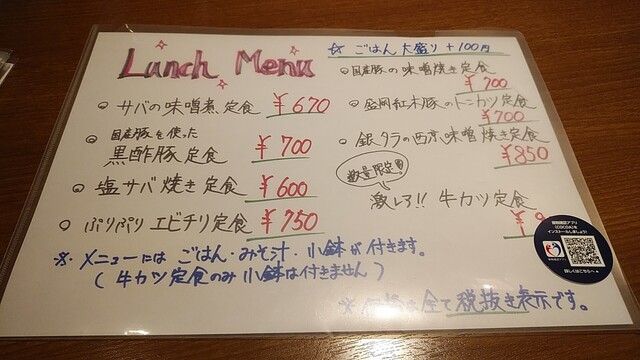 Lunch Menu
サバの味噌煮定食 ¥670
国産豚を使った
黒酢豚定食 ¥700
塩サバ焼き定食 ¥600
ぷりぷりエビチリ定食 ¥750
☆ ごはん大盛り +100円
国産豚の味噌焼き定食
¥700
盛岡紅木豚のトンカツ定食
¥700
銀タラの西京味噌焼き定食
¥850
数量限定!!
激レア!! 牛カツ定食
¥9
※ メニューには ごはん・みそ汁・小鉢が付きます。
(牛カツ定食のみ 小鉢は付きません)
※ は全て税抜き表示です。
接触確認アプリ
(COCOA)を
インストールしましょう!
詳しくはこちらへ